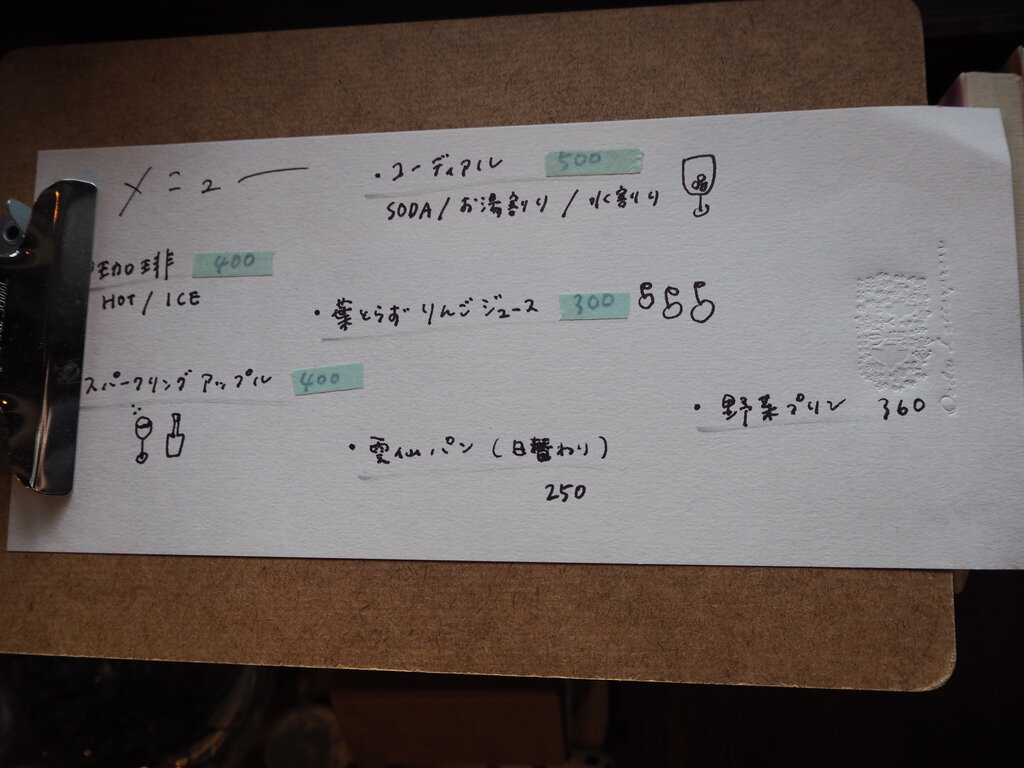 メニュー
珈琲 400
HOT / ICE
スパークリングアップル 400
・コーディアル 500
SODA / お湯割り / 水割り
・葉とらずりんごジュース 300
・雲仙パン (日替わり)
250
・野菜プリン 360